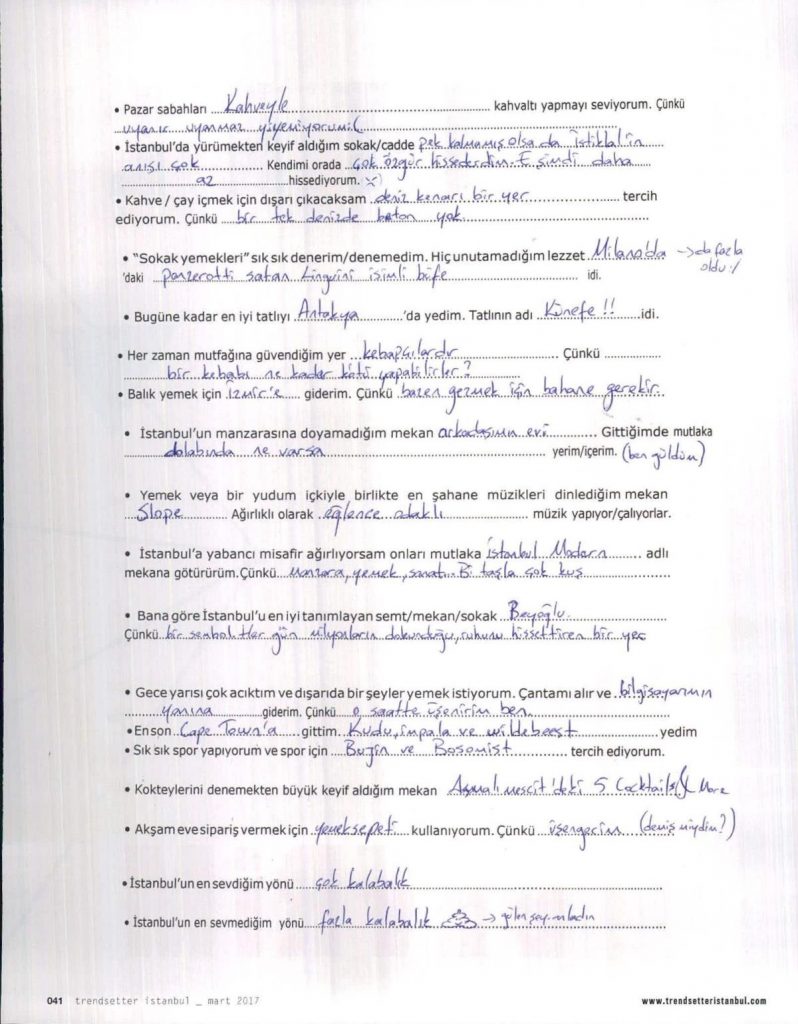 • Pazar sabahları Kahveyle kahvaltı yapmayı seviyorum. Çünkü
uyanır uyanmaz yiyemiyorum :(
• İstanbul'da yürümekten keyif aldığım sokak/cadde pek kalmamış olsa da İstiklal'in
anısı çok Kendimi orada çok özgür hissederdim. E şimdi daha
az hissediyorum.
• Kahve / çay içmek için dışarı çıkacaksam deniz kenarı bir yer tercih
ediyorum. Çünkü bir tek denizde beton yok
• "Sokak yemekleri" sık sık denerim/denemedim. Hiç unutamadığım lezzet Milano'da → da fazla
'daki panzerotti satan Linguini isimli büfe idi. oldu :/
• Bugüne kadar en iyi tatlıyı Antakya 'da yedim. Tatlının adı Künefe !! idi.
• Her zaman mutfağına güvendiğim yer kebapçılardır Çünkü
bir kebabı ne kadar kötü yapabilirler?
• Balık yemek için İzmir'e giderim. Çünkü bazen gezmek için bahane gerekir.
• İstanbul'un manzarasına doyamadığım mekan arkadaşımın evi Gittiğimde mutlaka
dolabında ne varsa yerim/içerim. (ben güldüm)
• Yemek veya bir yudum içkiyle birlikte en şahane müzikleri dinlediğim mekan
Slope Ağırlıklı olarak eğlence odaklı müzik yapıyor/çalıyorlar.
• İstanbul'a yabancı misafir ağırlıyorsam onları mutlaka İstanbul Modern adlı
mekana götürürüm. Çünkü manzara, yemek, sanat.. Bi taşla çok kuş
• Bana göre İstanbul'u en iyi tanımlayan semt/mekan/sokak Beyoğlu.
Çünkü bir sembol. Her gün milyonların dokunduğu, ruhunu hissettiren bir yer
• Gece yarısı çok acıktım ve dışarıda bir şeyler yemek istiyorum. Çantamı alır ve bilgisayarımın
yanına giderim. Çünkü o saatte üşenirim ben.
• En son Cape Town'a gittim. Kudu, impala ve wildebeest yedim
• Sık sık spor yapıyorum ve spor için Bugin ve Bosomist tercih ediyorum.
• Kokteylerini denemekten büyük keyif aldığım mekan Asmalımescit'deki 5 Cocktails & More
• Akşam eve sipariş vermek için yemeksepeti kullanıyorum. Çünkü üşengecim (demiş miydim?)
• İstanbul'un en sevdiğim yönü çok kalabalık
• İstanbul'un en sevmediğim yönü fazla kalabalık →
041 trendsetter istanbul _ mart 2017 www.trendsetteristanbul.com